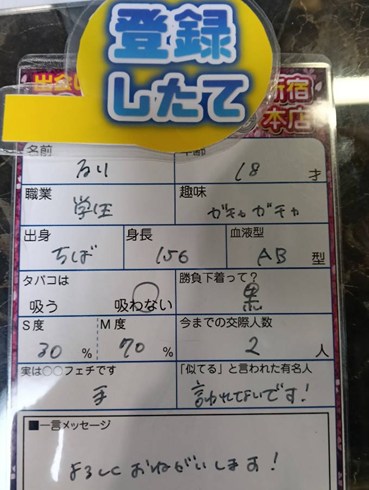 登録
したて
出会い
新宿
本店
名前
年齢
るり
18 才
職業
趣味
学生
ガチャガチャ
出身
身長
血液型
ちば
156
AB 型
タバコは
勝負下着って?
吸う 吸わない
黒
S度
M度
今までの交際人数
30 %
70 %
2 人
実は○○フェチです
「似てる」と言われた有名人
手
言われてないです!
■一言メッセージ
よろしくおねがいします!